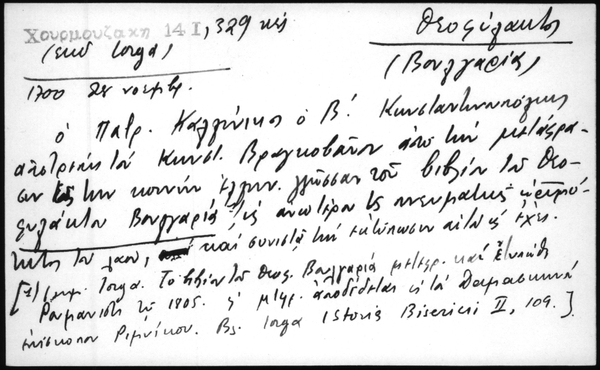 Χουρμουζάκη 14 I, 329 κεξ Θεοφύλακτος
(εκδ Iorga) (Βουλγαρίας)
1700 28 νοεμβρ.
ὁ Πατρ. Καλλίνικος ὁ Β´. Κωνσταντινουπόλεως
ἀποτρέπει τὸν Κωνστ. Βραγκοβάνον ἀπὸ τὴν μετάφρα-
σιν εἰς τὴν κοινὴν γλῶσσαν τοῦ βιβλίου τοῦ Θεο-
φυλάκτου Βουλγαρίας, ὡς ἀνώτερον τῆς πνευματικῆς
τοῦ λαοῦ, καὶ συνιστᾷ τὴν ἐκτύπωσιν αὐτοῦ
[Σ) (σημ. Iorga. Τὸ βιβλίον τοῦ Θεοφ. Βουλγαρίας μετεφρ. καὶ ἐτυπώθη
Ρουμανιστὶ τῷ 1805. ἡ μετφρ. ἀποδίδεται εἰς τὸν Δαμασκηνὸν
ἐπίσκοπον Ριμνίκου. Βλ. Iorga Istoria Bisericii II, 109.]